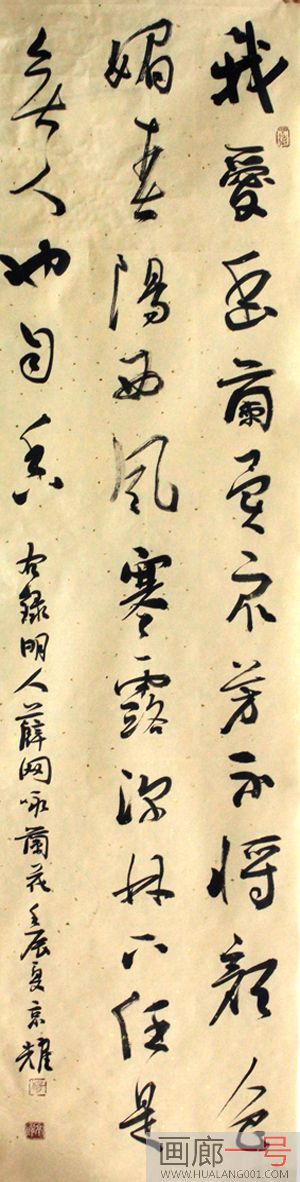 我愛幽蘭異眾芳不将颜色
媚春陽西風寒露深林下任是
無人也自香
右録明人薛网咏蘭花壬辰夏京耀
画廊一号
WWW.HUALANG001.COM